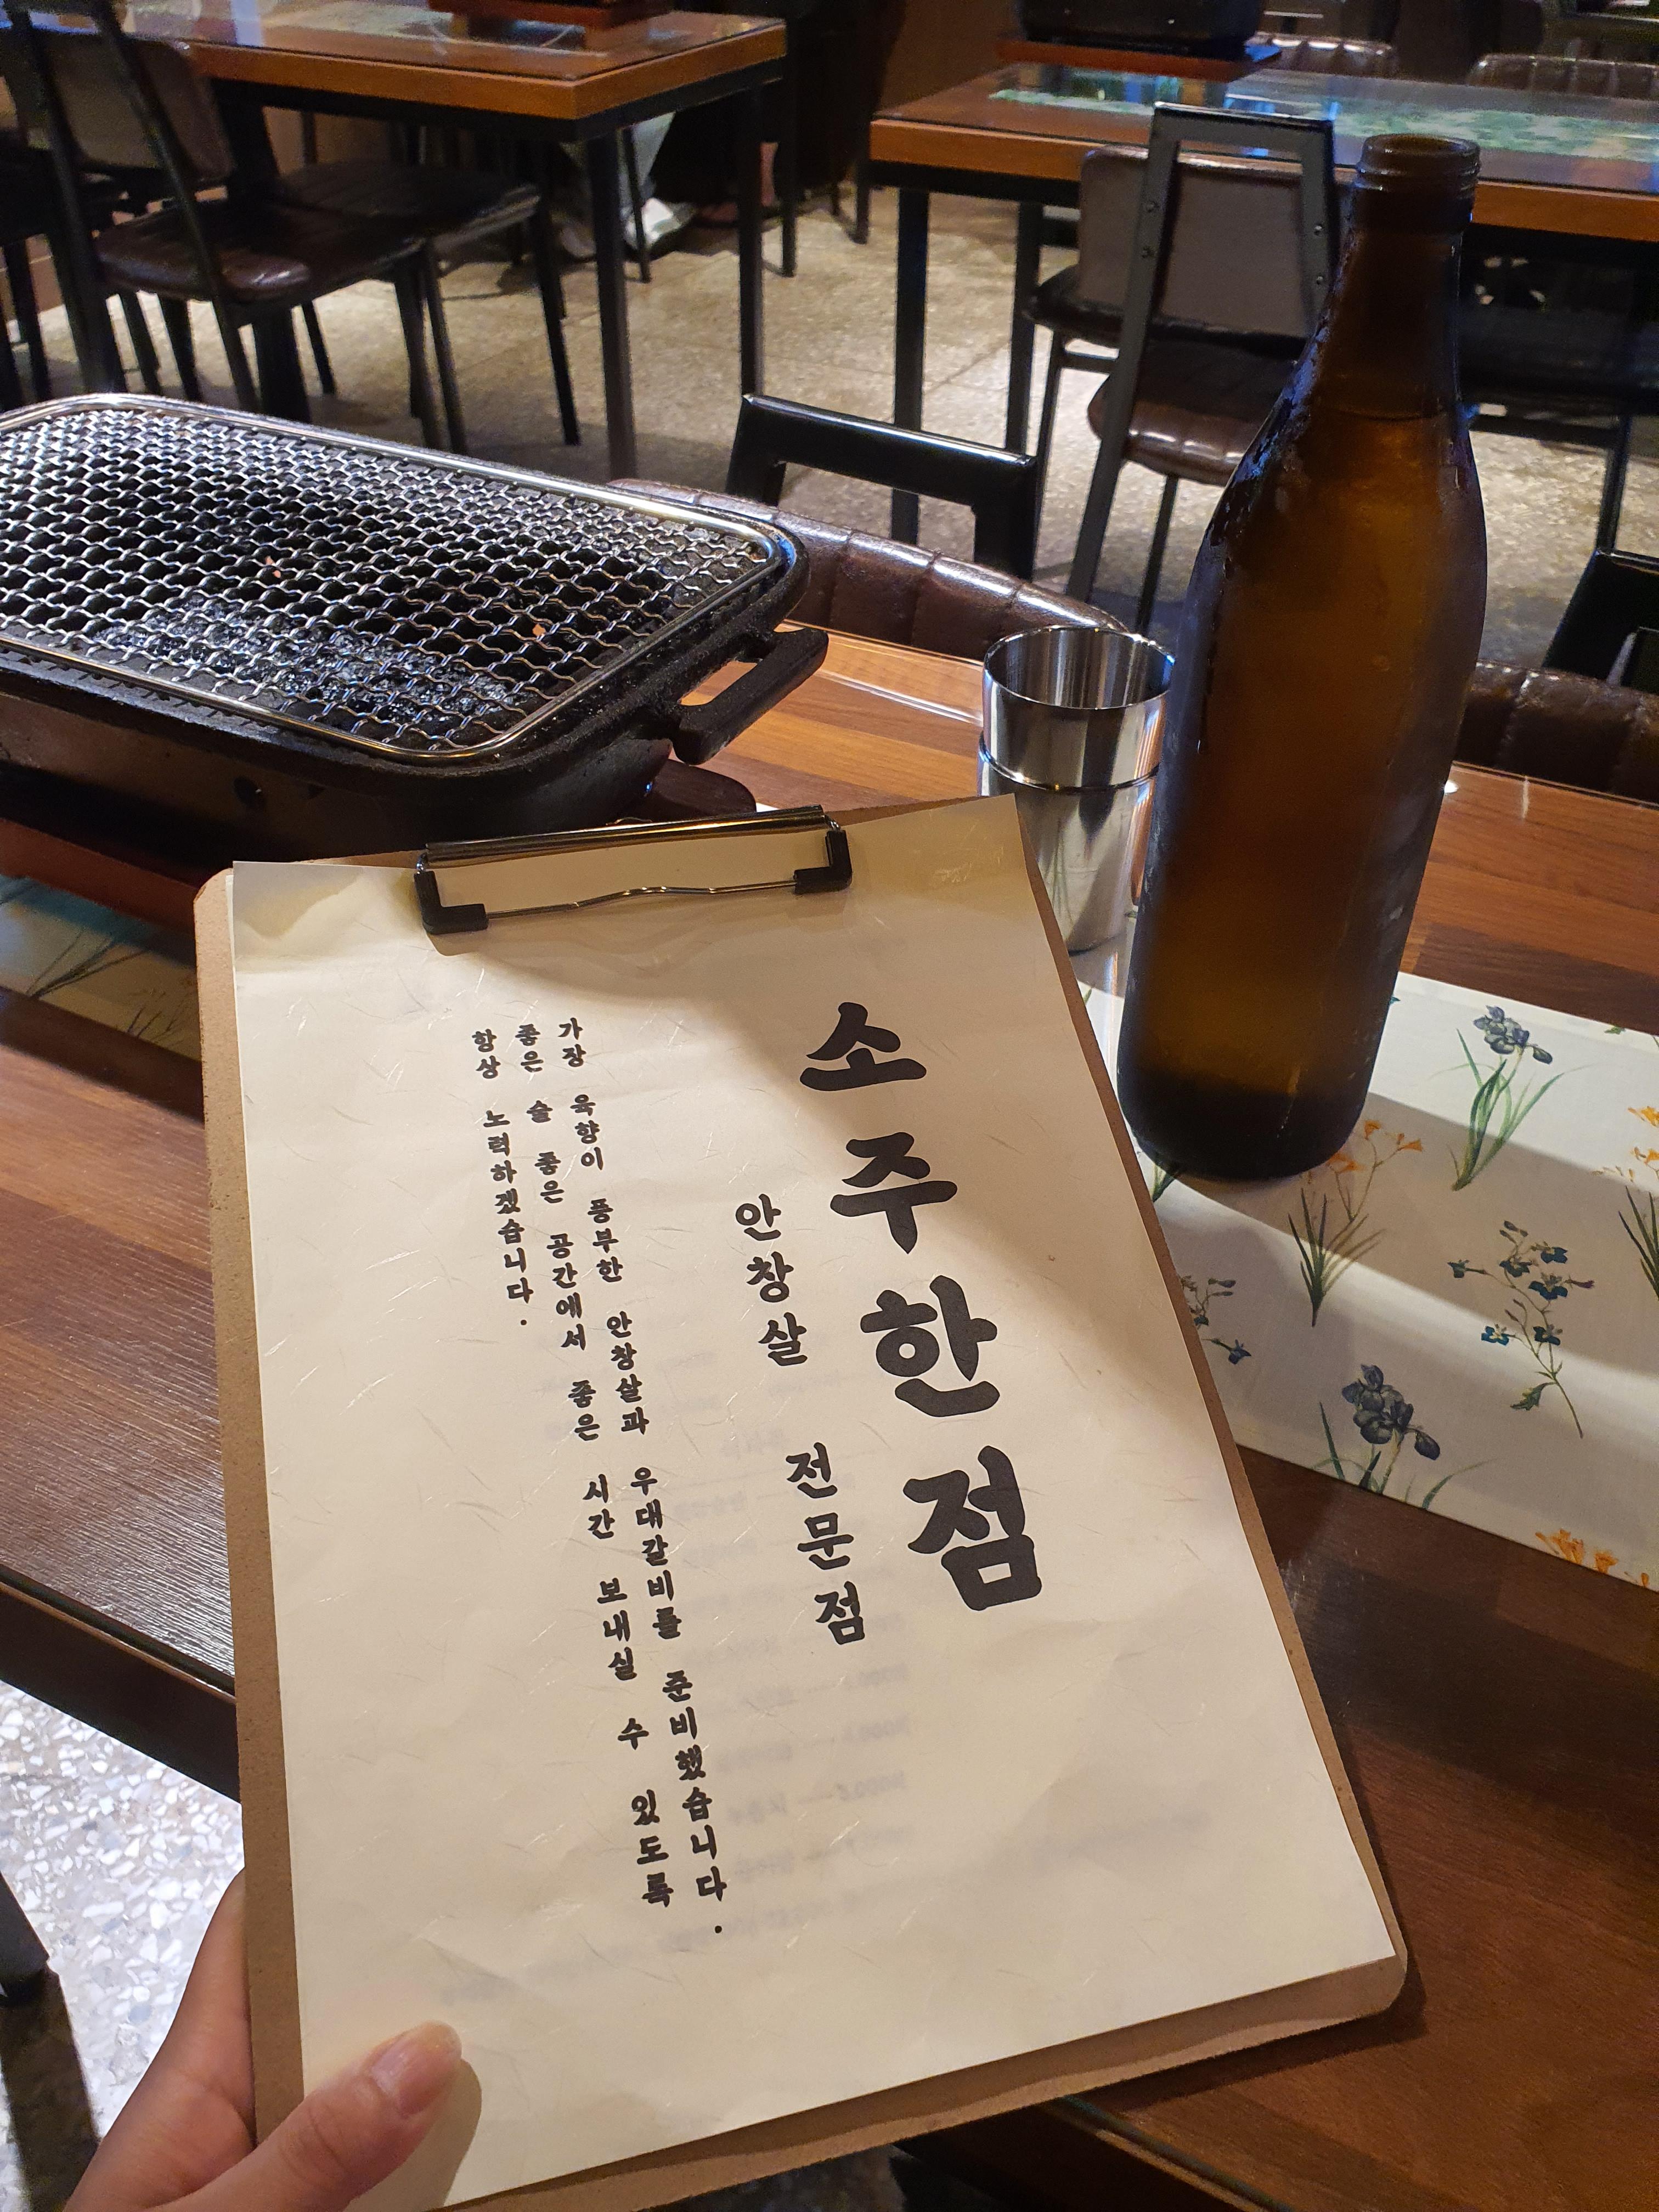 소주한점
안창살 전문점
가장 육향이 풍부한 안창살과 우대갈비를 준비했습니다.
좋은 술 좋은 공간에서 좋은 시간 보내실 수 있도록
항상 노력하겠습니다.